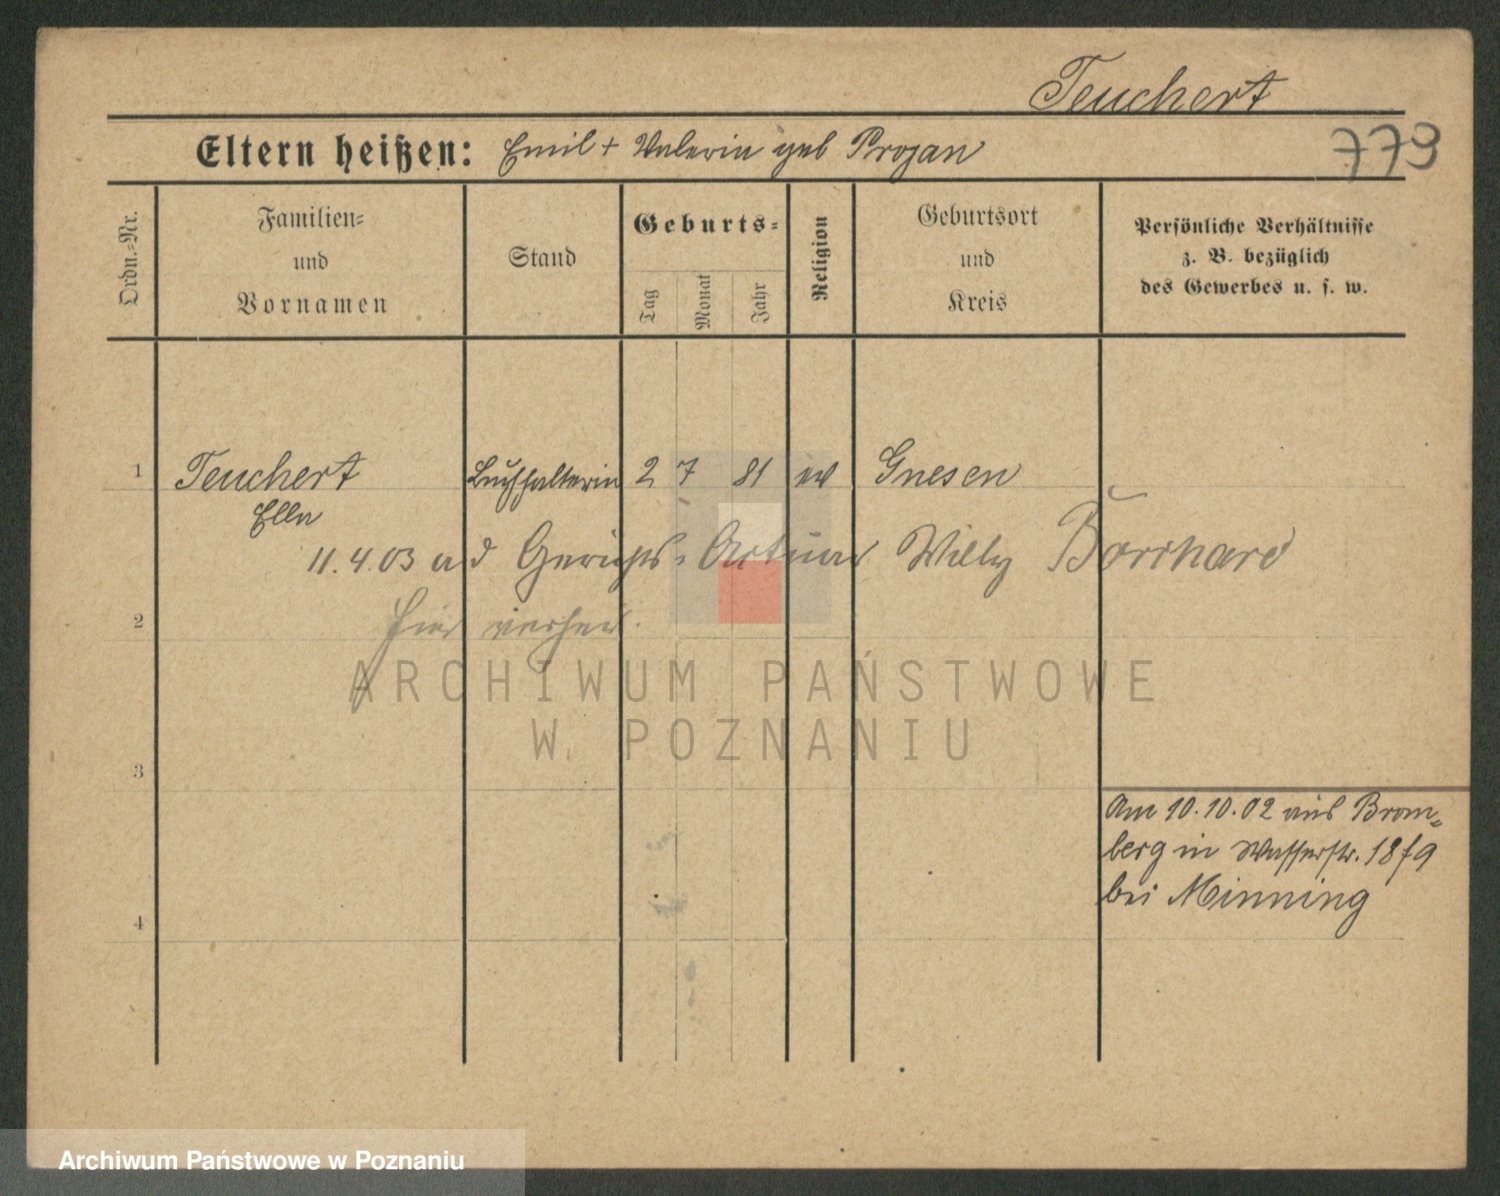 Teuchert
Eltern heißen: Emil + Valeria geb Projan
779
Ordn.-Nr.
Familien-
und
Vornamen
Stand
Geburts-
Tag
Monat
Jahr
Religion
Geburtsort
und
Kreis
Persönliche Verhältnisse
z. B. bezüglich
des Gewerbes u. s. w.
1 Teuchert Buchhalterin 2 7 81 ev Gnesen
Ella
11.4.03 a d Gerichts-Actuar Willy
2 hier verheir.
ARCHIWUM PAŃSTWOWE
W POZNANIU
3
Am 10.10.02 aus Brom-
berg in Wasserstr. 18/9
bei Minning
4
Archiwum Państwowe w Poznaniu